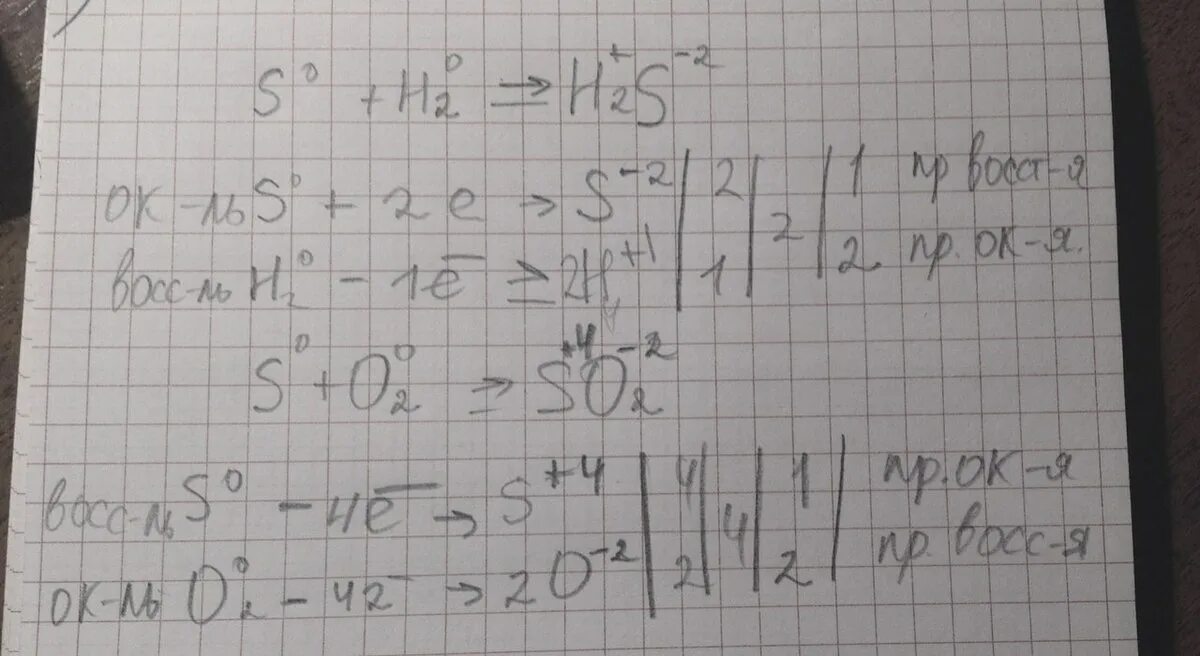 S⁰ + H₂⁰ ⇒ H₂⁺S⁻²
ок-ль S⁰ + 2e → S⁻² | 2 | 2 | 1 пр восст-я
восс-ль H₂⁰ - 1e⁻ ⇒ 2H⁺¹ | 1 | 2 | 2 пр. ок-я.
S⁰ + O₂⁰ ⇒ S⁺⁴O₂⁻²
восс-ль S⁰ - 4e⁻ → S⁺⁴ | 4 | 4 | 1 | пр. ок-я
ок-ль O₂⁰ - 4e⁻ → 2O⁻² | 2 | 4 | 2 | пр. восс-я